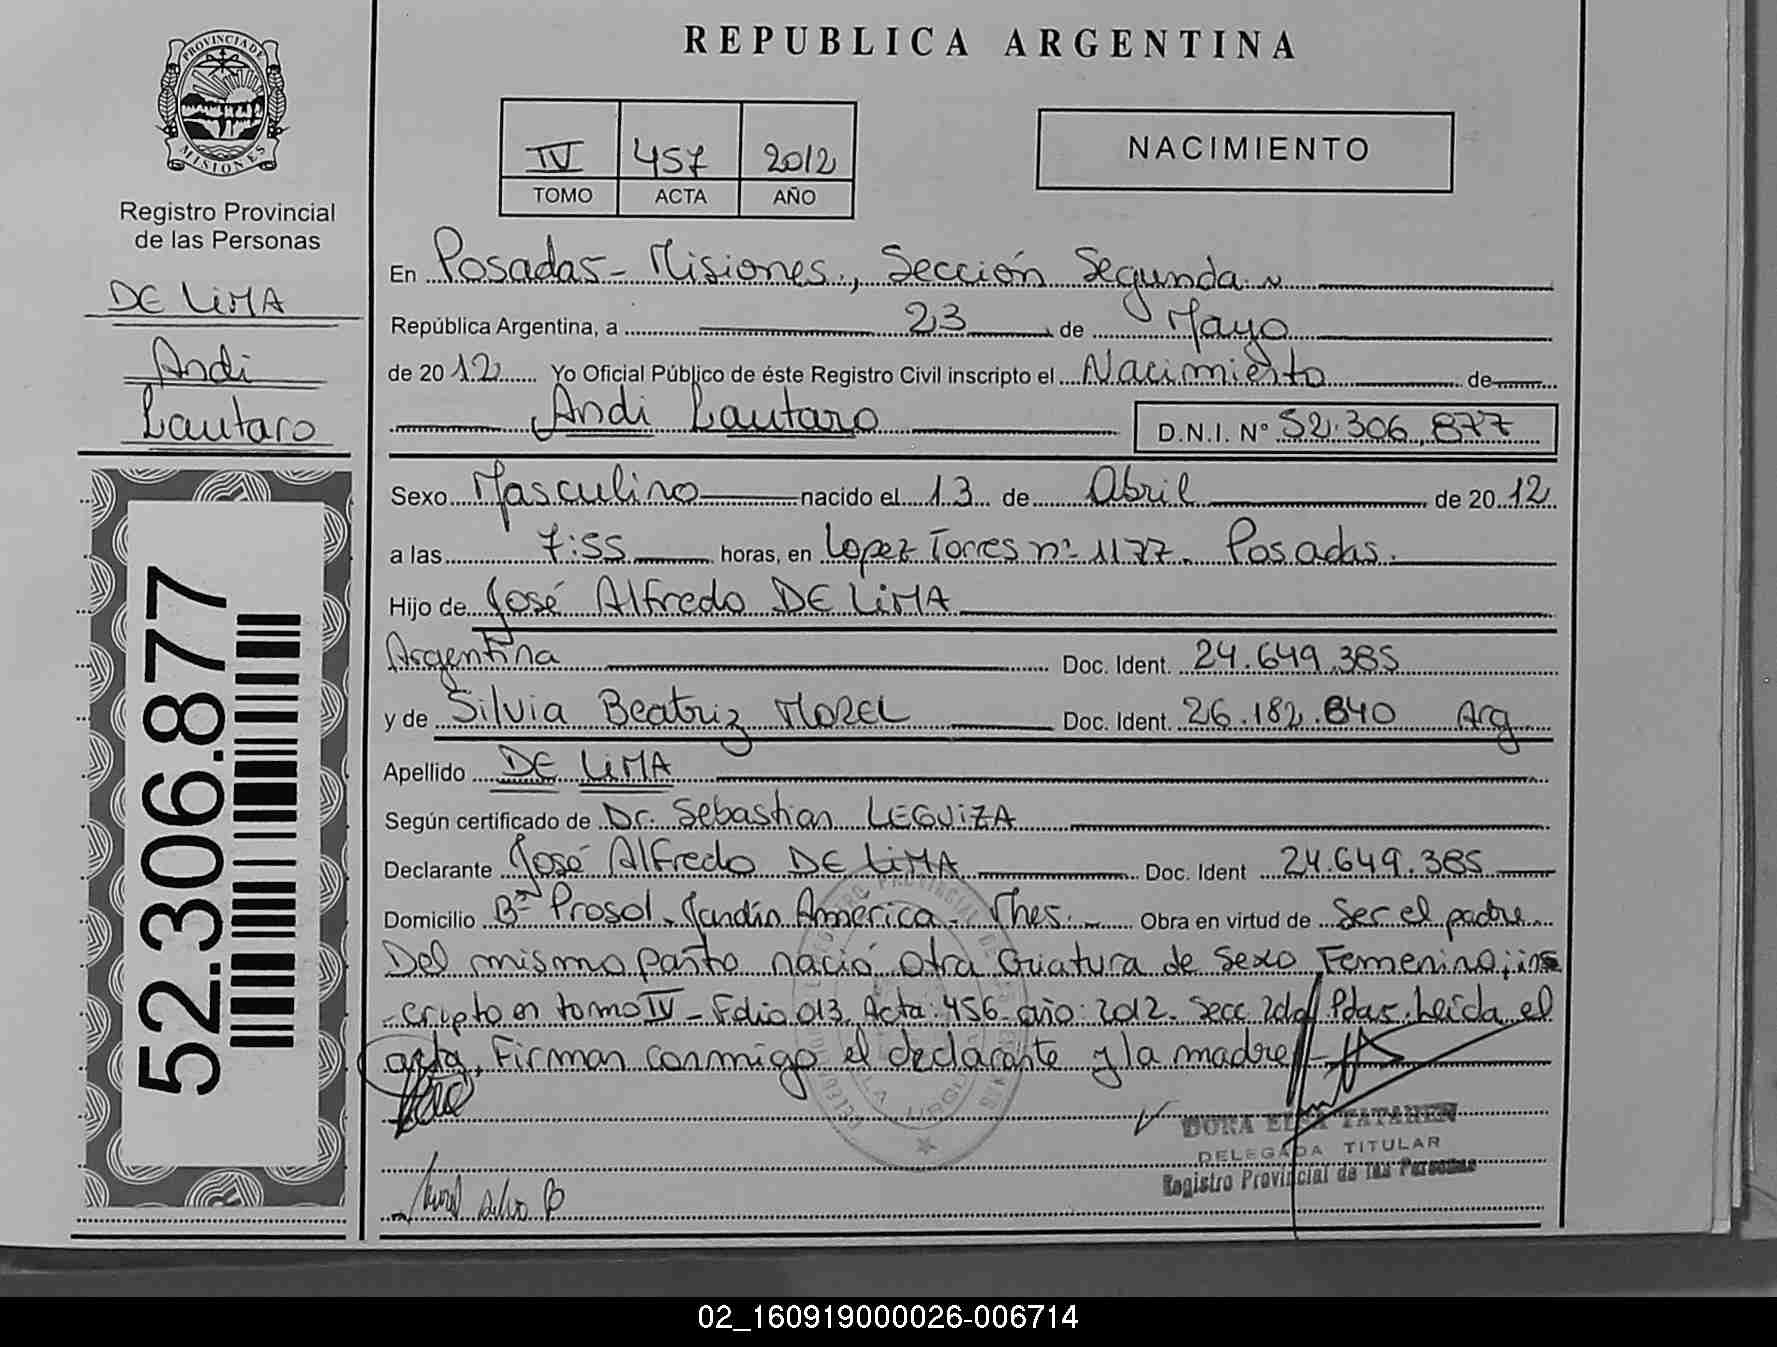 REPUBLICA ARGENTINA
PROVINCIA DE MISIONES
Registro Provincial
de las Personas
DE LIMA
Andi
Lautaro
52.306.877
IV 457 2012
TOMO ACTA AÑO
NACIMIENTO
En Posadas - Misiones, Sección Segunda
República Argentina, a 23 de Mayo
de 2012 Yo Oficial Público de éste Registro Civil inscripto el Nacimiento de
Andi Lautaro D.N.I. N° 52.306.877
Sexo Masculino nacido el 13 de Abril de 2012
a las 7:55 horas, en Lopez Torres nº 1177. Posadas.
Hijo de José Alfredo DE LIMA
Argentina Doc. Ident. 24.649.385
y de Silvia Beatriz MOREL Doc. Ident. 26.182.840 Arg
Apellido DE LIMA
Según certificado de Dr. Sebastian LEGUIZA
Declarante José Alfredo DE LIMA Doc. Ident 24.649.385
Domicilio Bº Prosol - Jardín América - Mnes. Obra en virtud de Ser el padre
Del mismo parto nació otra Criatura de Sexo Femenino, ins
-cripto en tomo IV - Folio 013. Acta: 456 año: 2012. Secc. 2da Pdas. Leída el
acta, Firman conmigo el declarante y la madre
DORA ELSA
DELEGADA TITULAR
Registro Provincial de las Personas
Morel Silvia B
02_160919000026-006714